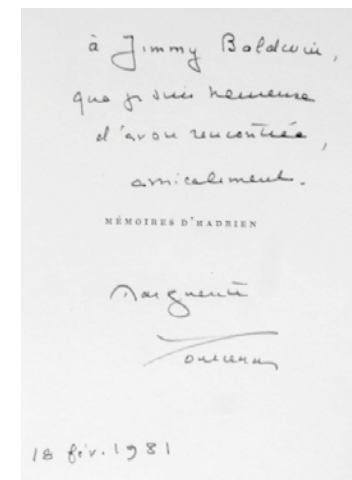 à Jimmy Baldwin,
que je suis heureuse
d'avoir rencontrée,
amicalement.
MÉMOIRES D'HADRIEN
Marguerite
Yourcenar
18 fév. 1981